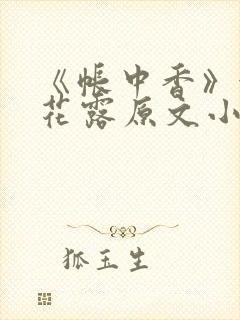 《帐中香》
花露原文小
狐玉生